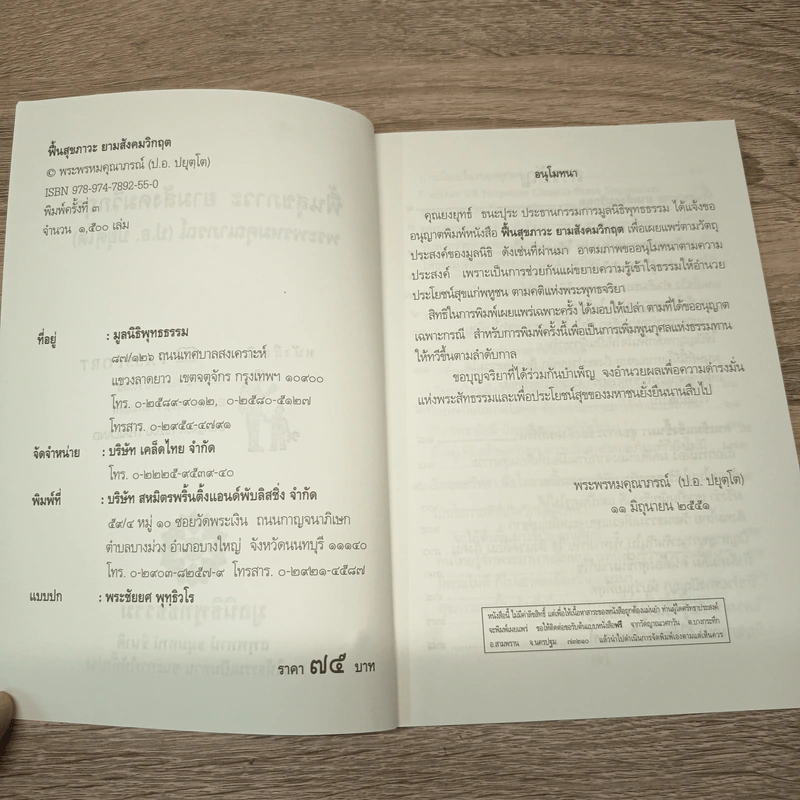 ฟื้นสุขภาวะ ยามสังคมวิกฤต
© พระพรหมคุณาภรณ์ (ป.อ. ปยุตฺโต)
ISBN 978-974-7892-55-0
พิมพ์ครั้งที่ ๓
จำนวน ๑,๕๐๐ เล่ม
ที่อยู่ : มูลนิธิพุทธธรรม
๘๗/๑๒๖ ถนนเทศบาลสงเคราะห์
แขวงลาดยาว เขตจตุจักร กรุงเทพฯ ๑๐๙๐๐
โทร. ๐-๒๕๘๙-๙๐๑๒, ๐-๒๕๘๐-๕๑๒๗
โทรสาร. ๐-๒๙๕๔-๔๗๙๑
จัดจำหน่าย : บริษัท เคล็ดไทย จำกัด
โทร. ๐-๒๒๒๕-๙๕๓๙-๔๐
พิมพ์ที่ : บริษัท สหมิตรพริ้นติ้งแอนด์พับลิสชิ่ง จำกัด
๕๙/๔ หมู่ ๑๐ ซอยวัดพระเงิน ถนนกาญจนาภิเษก
ตำบลบางม่วง อำเภอบางใหญ่ จังหวัดนนทบุรี ๑๑๑๔๐
โทร. ๐-๒๙๐๓-๘๒๕๗-๙ โทรสาร. ๐-๒๙๒๑-๔๕๘๗
แบบปก : พระชัยยศ พุทฺธิวโร
ราคา ๗๕ บาท
อนุโมทนา
คุณยงยุทธ ธนะปุระ ประธานกรรมการมูลนิธิพุทธธรรม ได้แจ้งขอ
อนุญาตพิมพ์หนังสือ ฟื้นสุขภาวะ ยามสังคมวิกฤต เพื่อเผยแพร่ตามวัตถุ
ประสงค์ของมูลนิธิ ดังเช่นที่ผ่านมา อาตมภาพขออนุโมทนาตามความ
ประสงค์ เพราะเป็นการช่วยกันแผ่ขยายความรู้เข้าใจธรรมให้อำนวย
ประโยชน์สุขแก่พหูชน ตามคติแห่งพระพุทธจริยา
สิทธิในการพิมพ์เผยแพร่เฉพาะครั้ง ได้มอบให้เปล่า ตามที่ได้ขออนุญาต
เฉพาะกรณี สำหรับการพิมพ์ครั้งนี้เพื่อเป็นการเพิ่มพูนกุศลแห่งธรรมทาน
ให้ทวีขึ้นตามลำดับกาล
ขอบุญจริยาที่ได้ร่วมกันบำเพ็ญ จงอำนวยผลเพื่อความดำรงมั่น
แห่งพระสัทธรรมและเพื่อประโยชน์สุขของมหาชนยั่งยืนนานสืบไป
พระพรหมคุณาภรณ์ (ป.อ. ปยุตฺโต)
๑๑ มิถุนายน ๒๕๕๑
หนังสือนี้ ไม่มีค่าลิขสิทธิ์ แต่เพื่อให้เนื้อหาสาระของหนังสือถูกต้องแม่นยำ ท่านผู้ใดศรัทธาประสงค์
จะพิมพ์เผยแพร่ ขอให้ติดต่อขอรับต้นแบบหนังสือฟรี จากวัดญาณเวศกวัน ต.บางกระทึก
อ.สามพราน จ.นครปฐม ๗๓๒๑๐ แล้วนำไปดำเนินการจัดพิมพ์เองตามแต่เห็นควร